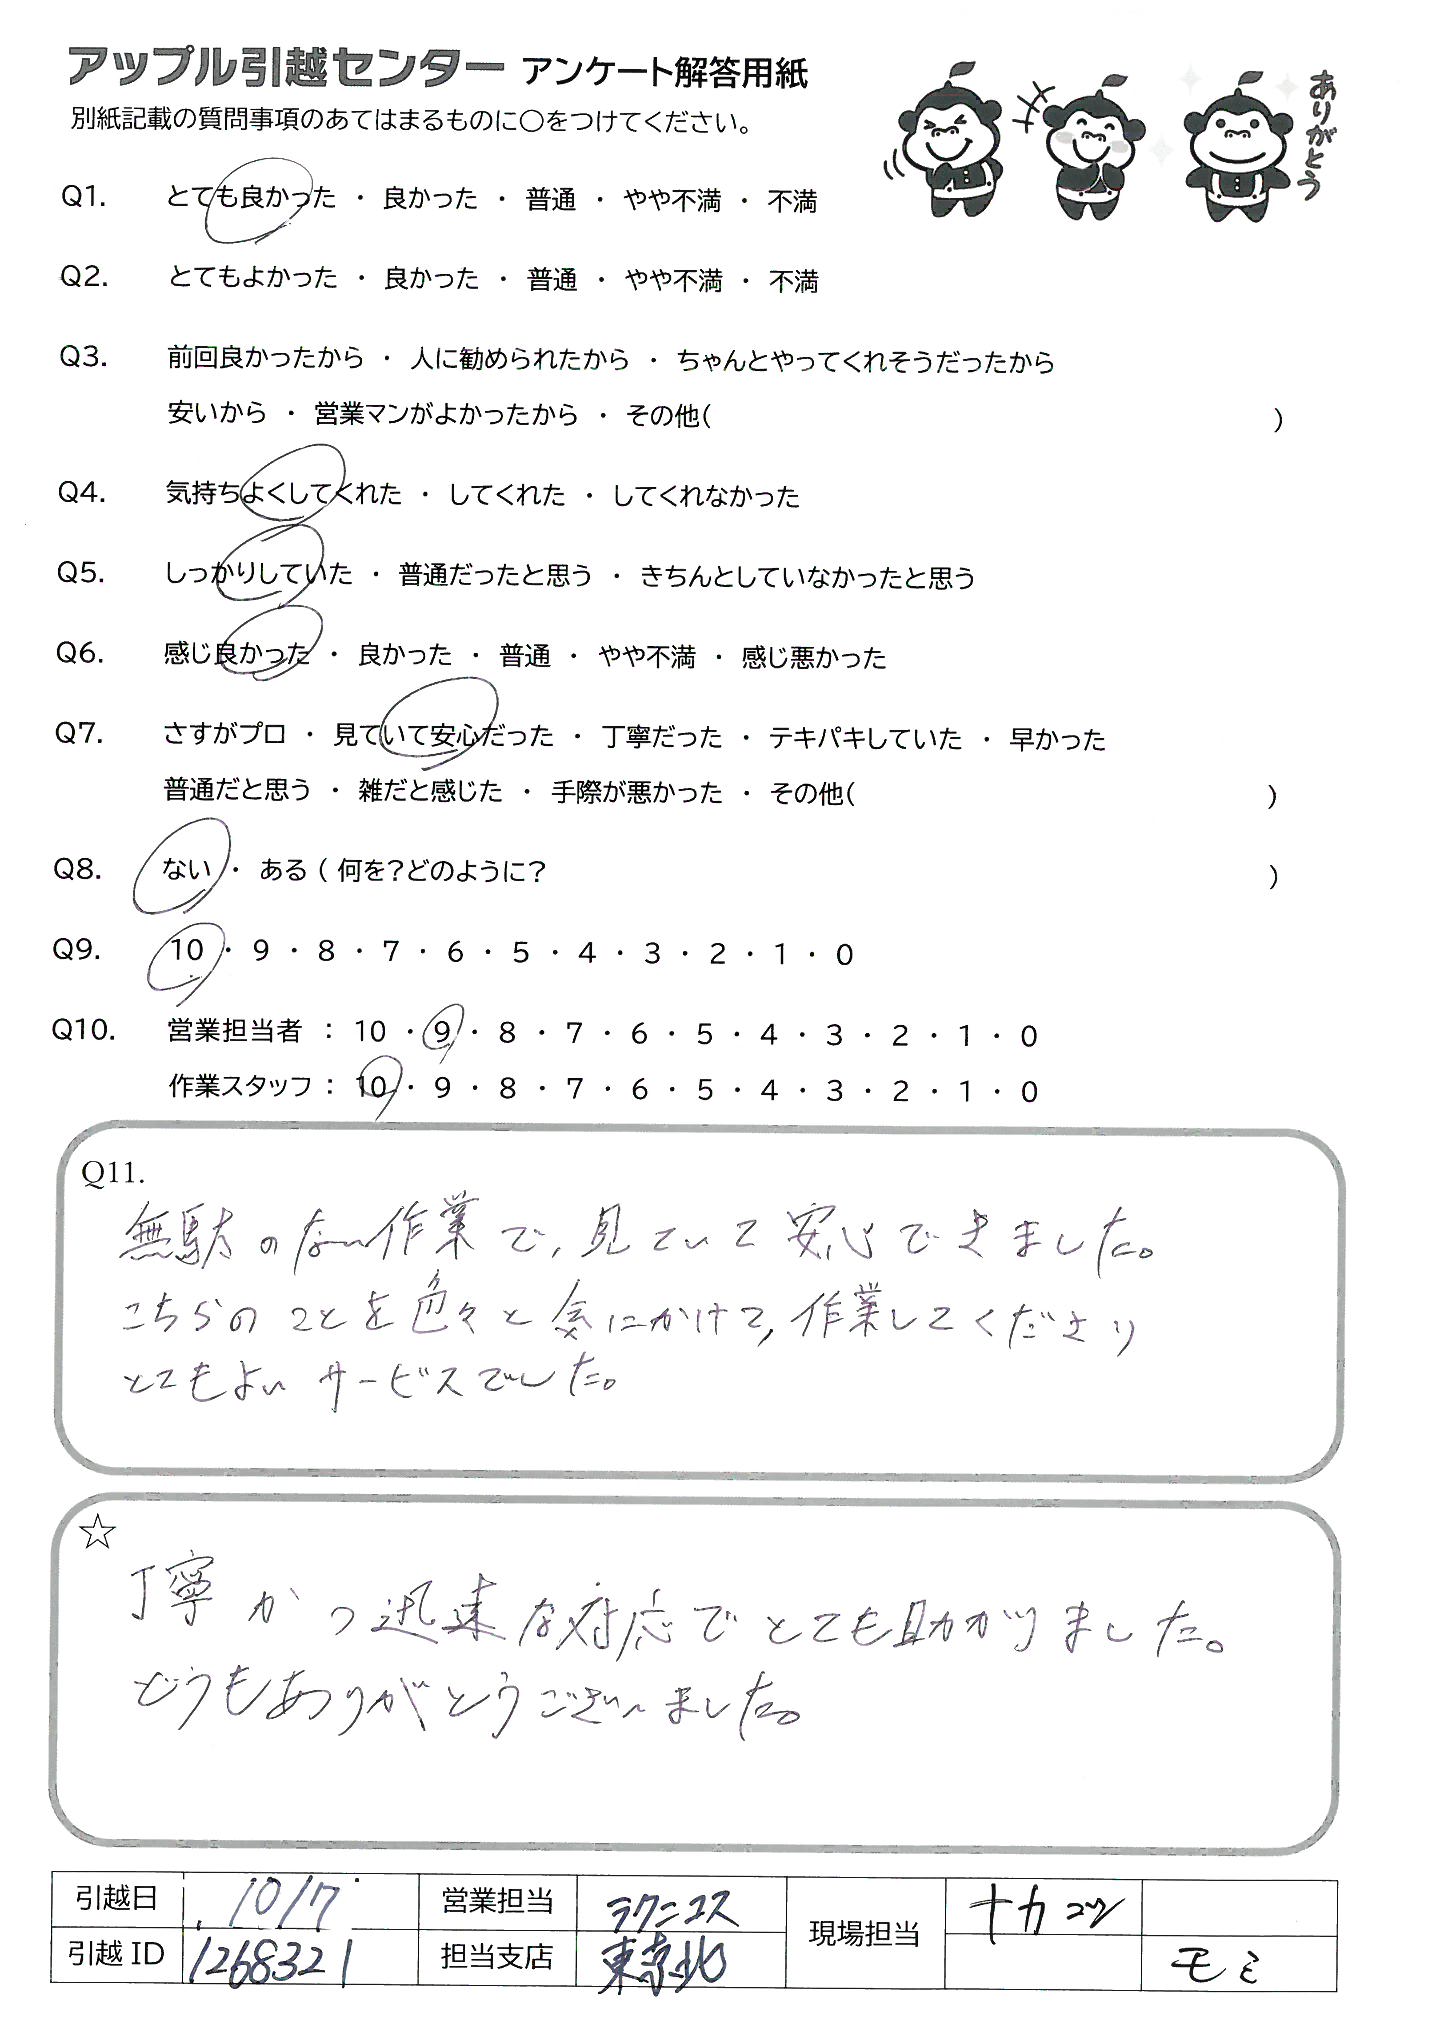 アップル引越センター アンケート解答用紙
ありがとう
別紙記載の質問事項のあてはまるものに○をつけてください。
Q1. とても良かった ・ 良かった ・ 普通 ・ やや不満 ・ 不満
Q2. とてもよかった ・ 良かった ・ 普通 ・ やや不満 ・ 不満
Q3. 前回良かったから ・ 人に勧められたから ・ ちゃんとやってくれそうだったから
安いから ・ 営業マンがよかったから ・ その他( )
Q4. 気持ちよくしてくれた ・ してくれた ・ してくれなかった
Q5. しっかりしていた ・ 普通だったと思う ・ きちんとしていなかったと思う
Q6. 感じ良かった ・ 良かった ・ 普通 ・ やや不満 ・ 感じ悪かった
Q7. さすがプロ ・ 見ていて安心だった ・ 丁寧だった ・ テキパキしていた ・ 早かった
普通だと思う ・ 雑だと感じた ・ 手際が悪かった ・ その他( )
Q8. ない ・ ある ( 何を?どのように? )
Q9. 10 ・ 9 ・ 8 ・ 7 ・ 6 ・ 5 ・ 4 ・ 3 ・ 2 ・ 1 ・ 0
Q10. 営業担当者 : 10 ・ 9 ・ 8 ・ 7 ・ 6 ・ 5 ・ 4 ・ 3 ・ 2 ・ 1 ・ 0
作業スタッフ : 10 ・ 9 ・ 8 ・ 7 ・ 6 ・ 5 ・ 4 ・ 3 ・ 2 ・ 1 ・ 0
Q11.
無駄のない作業で、見ていて安心できました。
こちらのことを色々と気にかけて、作業してくださり
とてもよいサービスでした。
☆
丁寧かつ迅速な対応でとても助かりました。
どうもありがとうございました。
引越日 10/7 営業担当 ラクニコス 現場担当 ナカコツ
引越ID 1268321 担当支店 東京北 モミ